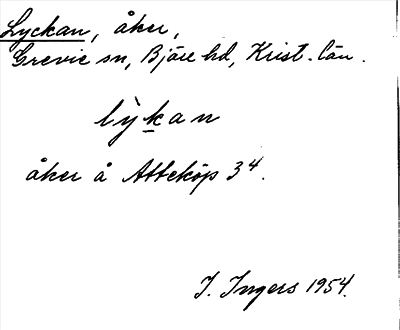 Lyckan, åker,
Grevie sn, Bjäre hd, Krist. län.
lỳkan
åker å Atteköp 3⁴.
I. Ingers 1954.